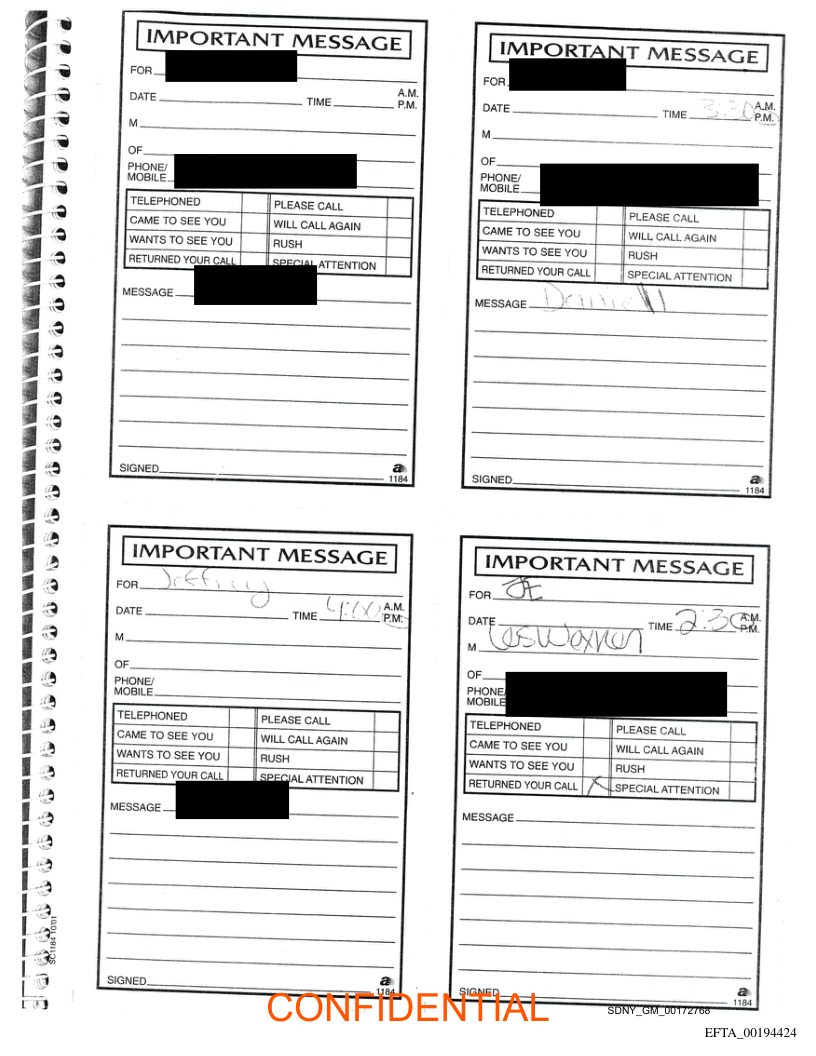 IMPORTANT MESSAGE
FOR
DATE TIME A.M. P.M.
M
OF
PHONE/ MOBILE
TELEPHONED PLEASE CALL
CAME TO SEE YOU WILL CALL AGAIN
WANTS TO SEE YOU RUSH
RETURNED YOUR CALL SPECIAL ATTENTION
MESSAGE
SIGNED
a
1184
IMPORTANT MESSAGE
FOR
DATE TIME 3:30 A.M. P.M.
M
OF
PHONE/ MOBILE
TELEPHONED PLEASE CALL
CAME TO SEE YOU WILL CALL AGAIN
WANTS TO SEE YOU RUSH
RETURNED YOUR CALL SPECIAL ATTENTION
MESSAGE
SIGNED
a
1184
IMPORTANT MESSAGE
FOR Jeffrey
DATE TIME 4:00 A.M. P.M.
M
OF
PHONE/ MOBILE
TELEPHONED PLEASE CALL
CAME TO SEE YOU WILL CALL AGAIN
WANTS TO SEE YOU RUSH
RETURNED YOUR CALL SPECIAL ATTENTION
MESSAGE
SIGNED
a
1184
IMPORTANT MESSAGE
FOR JE
DATE TIME 2:30 A.M. P.M.
M Les Wexner
OF
PHONE/ MOBILE
TELEPHONED PLEASE CALL
CAME TO SEE YOU WILL CALL AGAIN
WANTS TO SEE YOU RUSH
RETURNED YOUR CALL X SPECIAL ATTENTION
MESSAGE
SIGNED
a
1184
SC1184 10/01
CONFIDENTIAL
SDNY_GM_00172768
EFTA_00194424